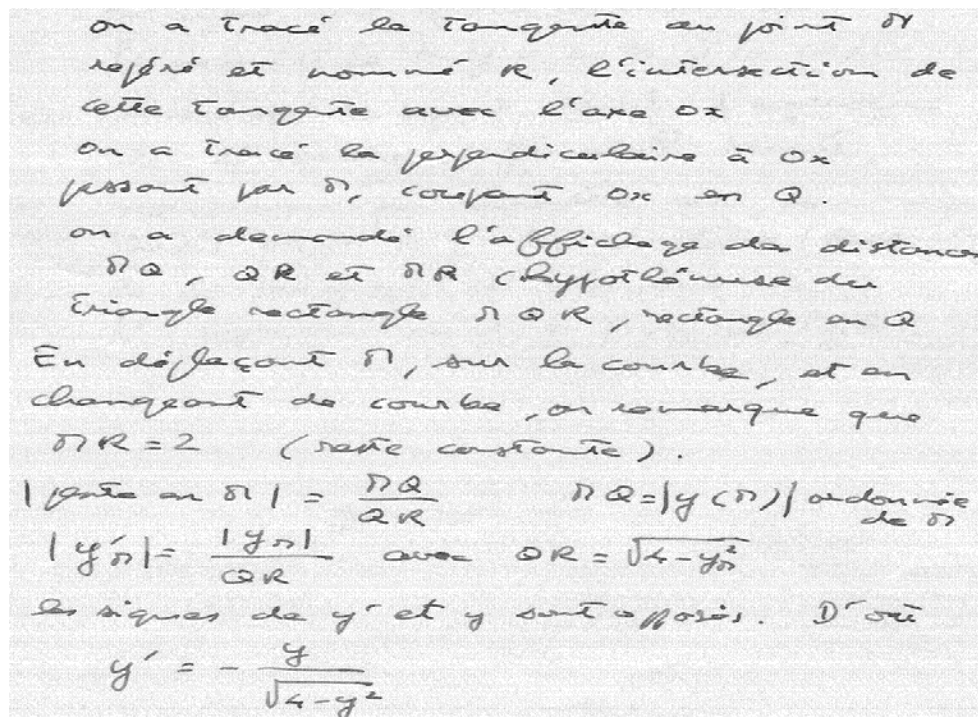 on a tracé la tangente au point M
repéré et nommé R, l'intersection de
cette tangente avec l'axe Ox
on a tracé la perpendiculaire à Ox
passant par M, coupant Ox en Q.
on a demandé l'affichage des distances
MQ, QR et MR (hypothénuse du
triangle rectangle MQR, rectangle en Q
En déplaçant M, sur la courbe, et en
changeant de courbe, on remarque que
MR = 2 (reste constante).
|pente en M| = MQ/QR MQ = |y(M)| ordonnée de M
|y'M| = |yM|/QR avec QR = √(4-yM²)
les signes de y' et y sont opposés. D'où
y' = - y/√(4-y²)